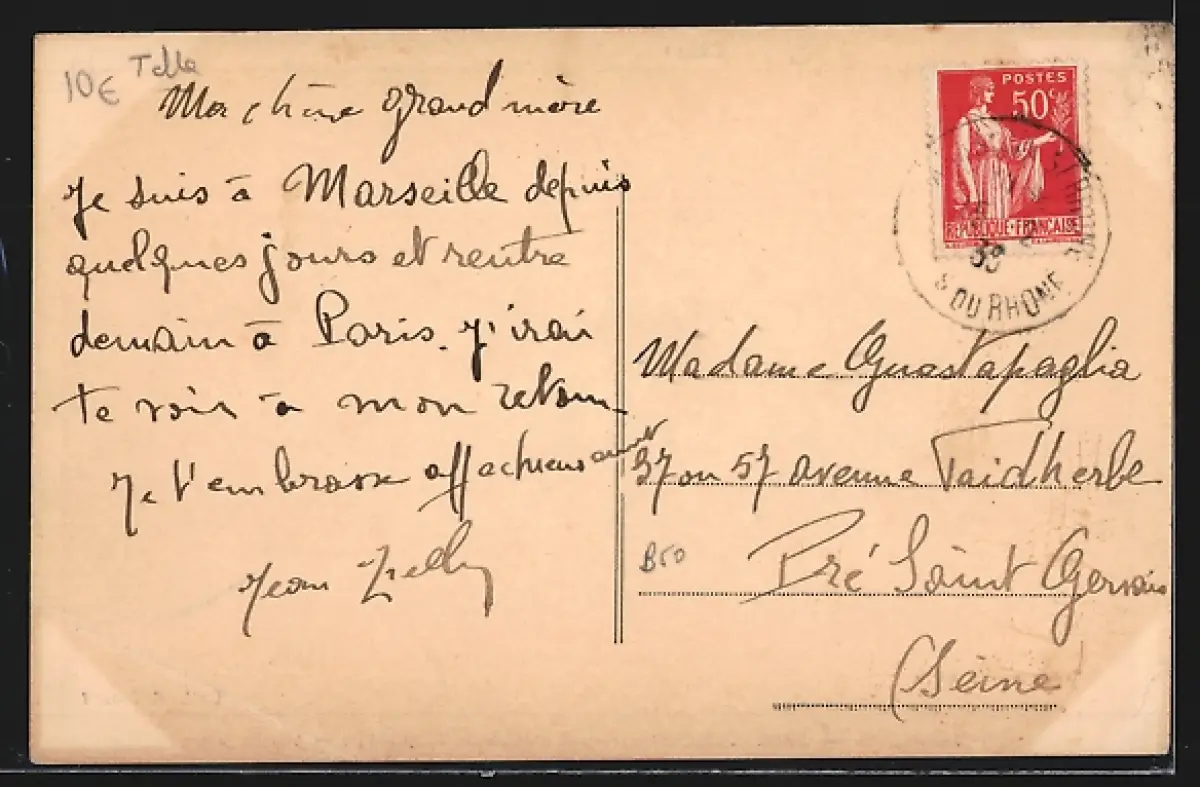 10€
Ma chère grand mère
Je suis à Marseille depuis
quelques jours et rentre
demain à Paris. J'irai
te voir à mon retour
Je t'embrasse affectueusement
Jean
POSTES
50c
REPUBLIQUE·FRANÇAISE
DU RHONE
Madame Guastapaglia
37 ou 57 avenue Faidherbe
B50
Pré Saint Gervais
(Seine